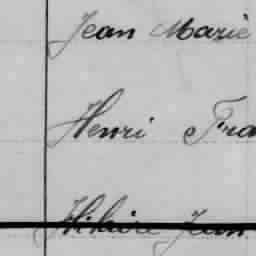 Jean Marie
Henri Fra
Hilaire Jean